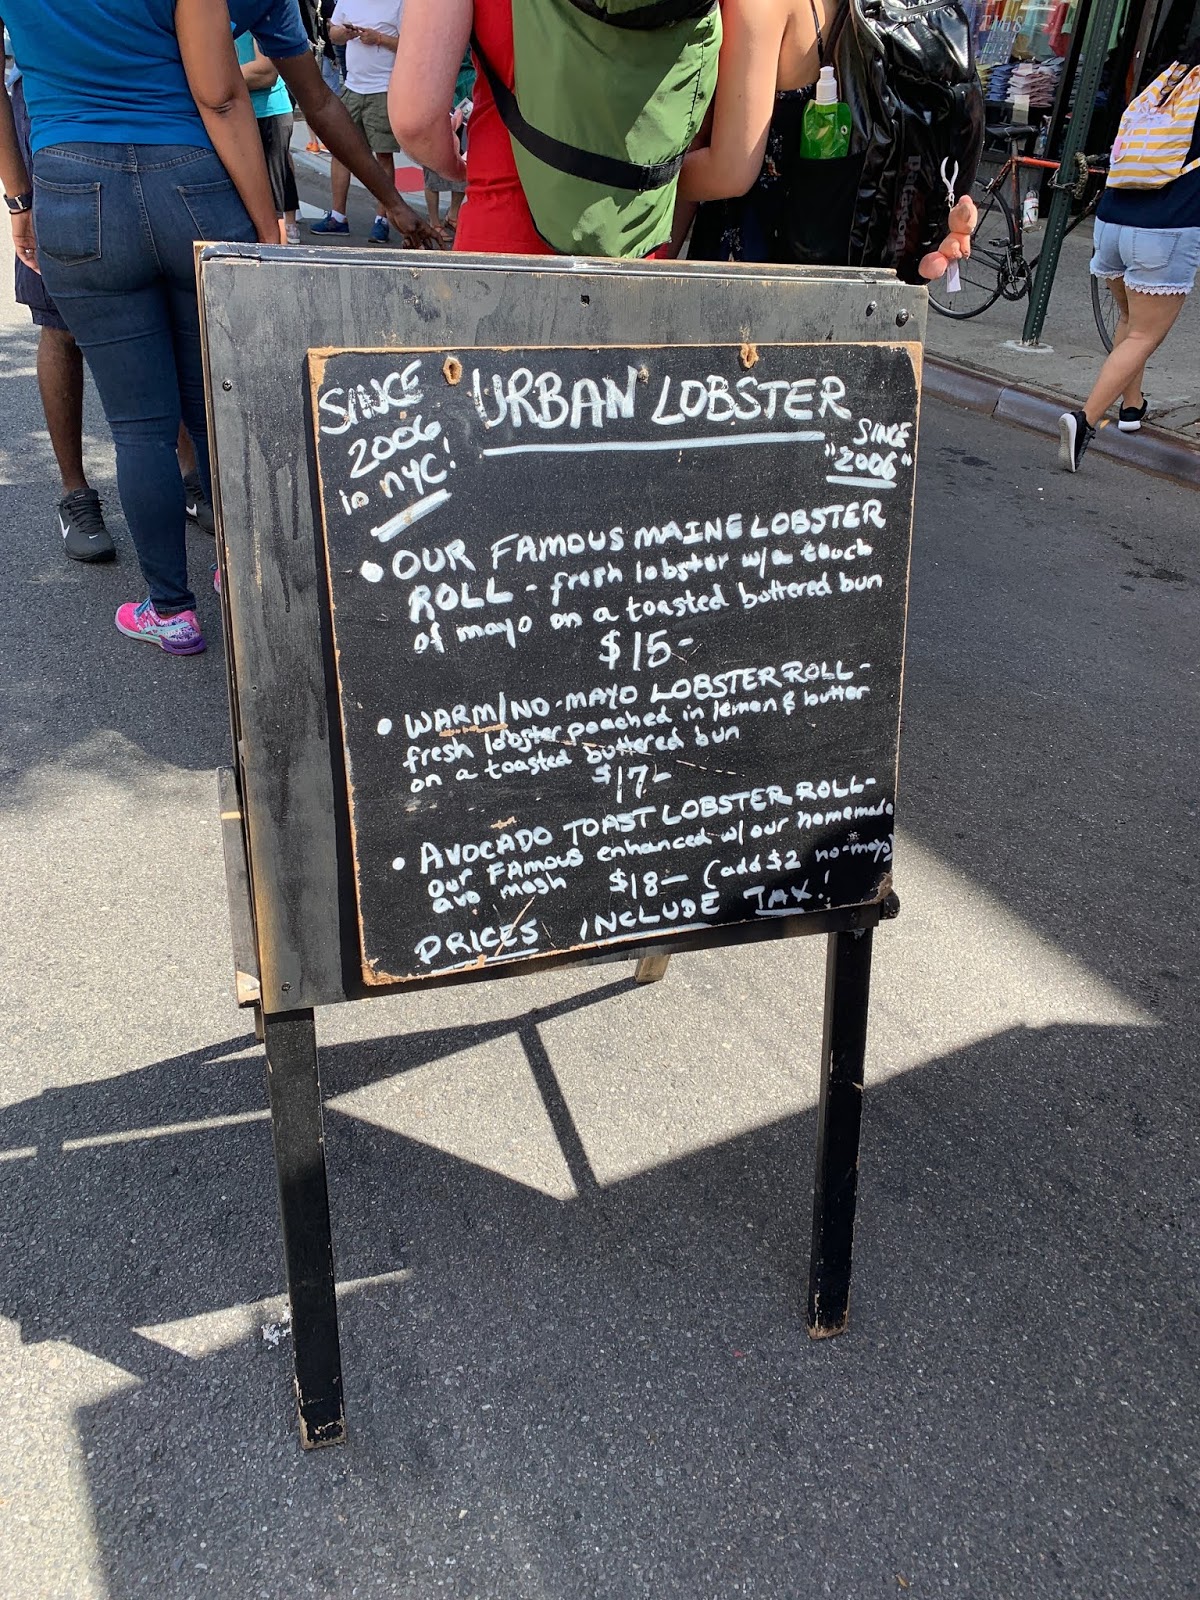 SINCE
2006
in NYC!
URBAN LOBSTER
SINCE
"2006"
• OUR FAMOUS MAINE LOBSTER
ROLL - fresh lobster w/a touch
of mayo on a toasted buttered bun
$15-
• WARM/NO-MAYO LOBSTER ROLL -
fresh lobster poached in lemon & butter
on a toasted buttered bun
$17-
• AVOCADO TOAST LOBSTER ROLL -
our FAMOUS enhanced w/ our homemade
avo mash $18- (add $2 no-mayo)
PRICES INCLUDE TAX!